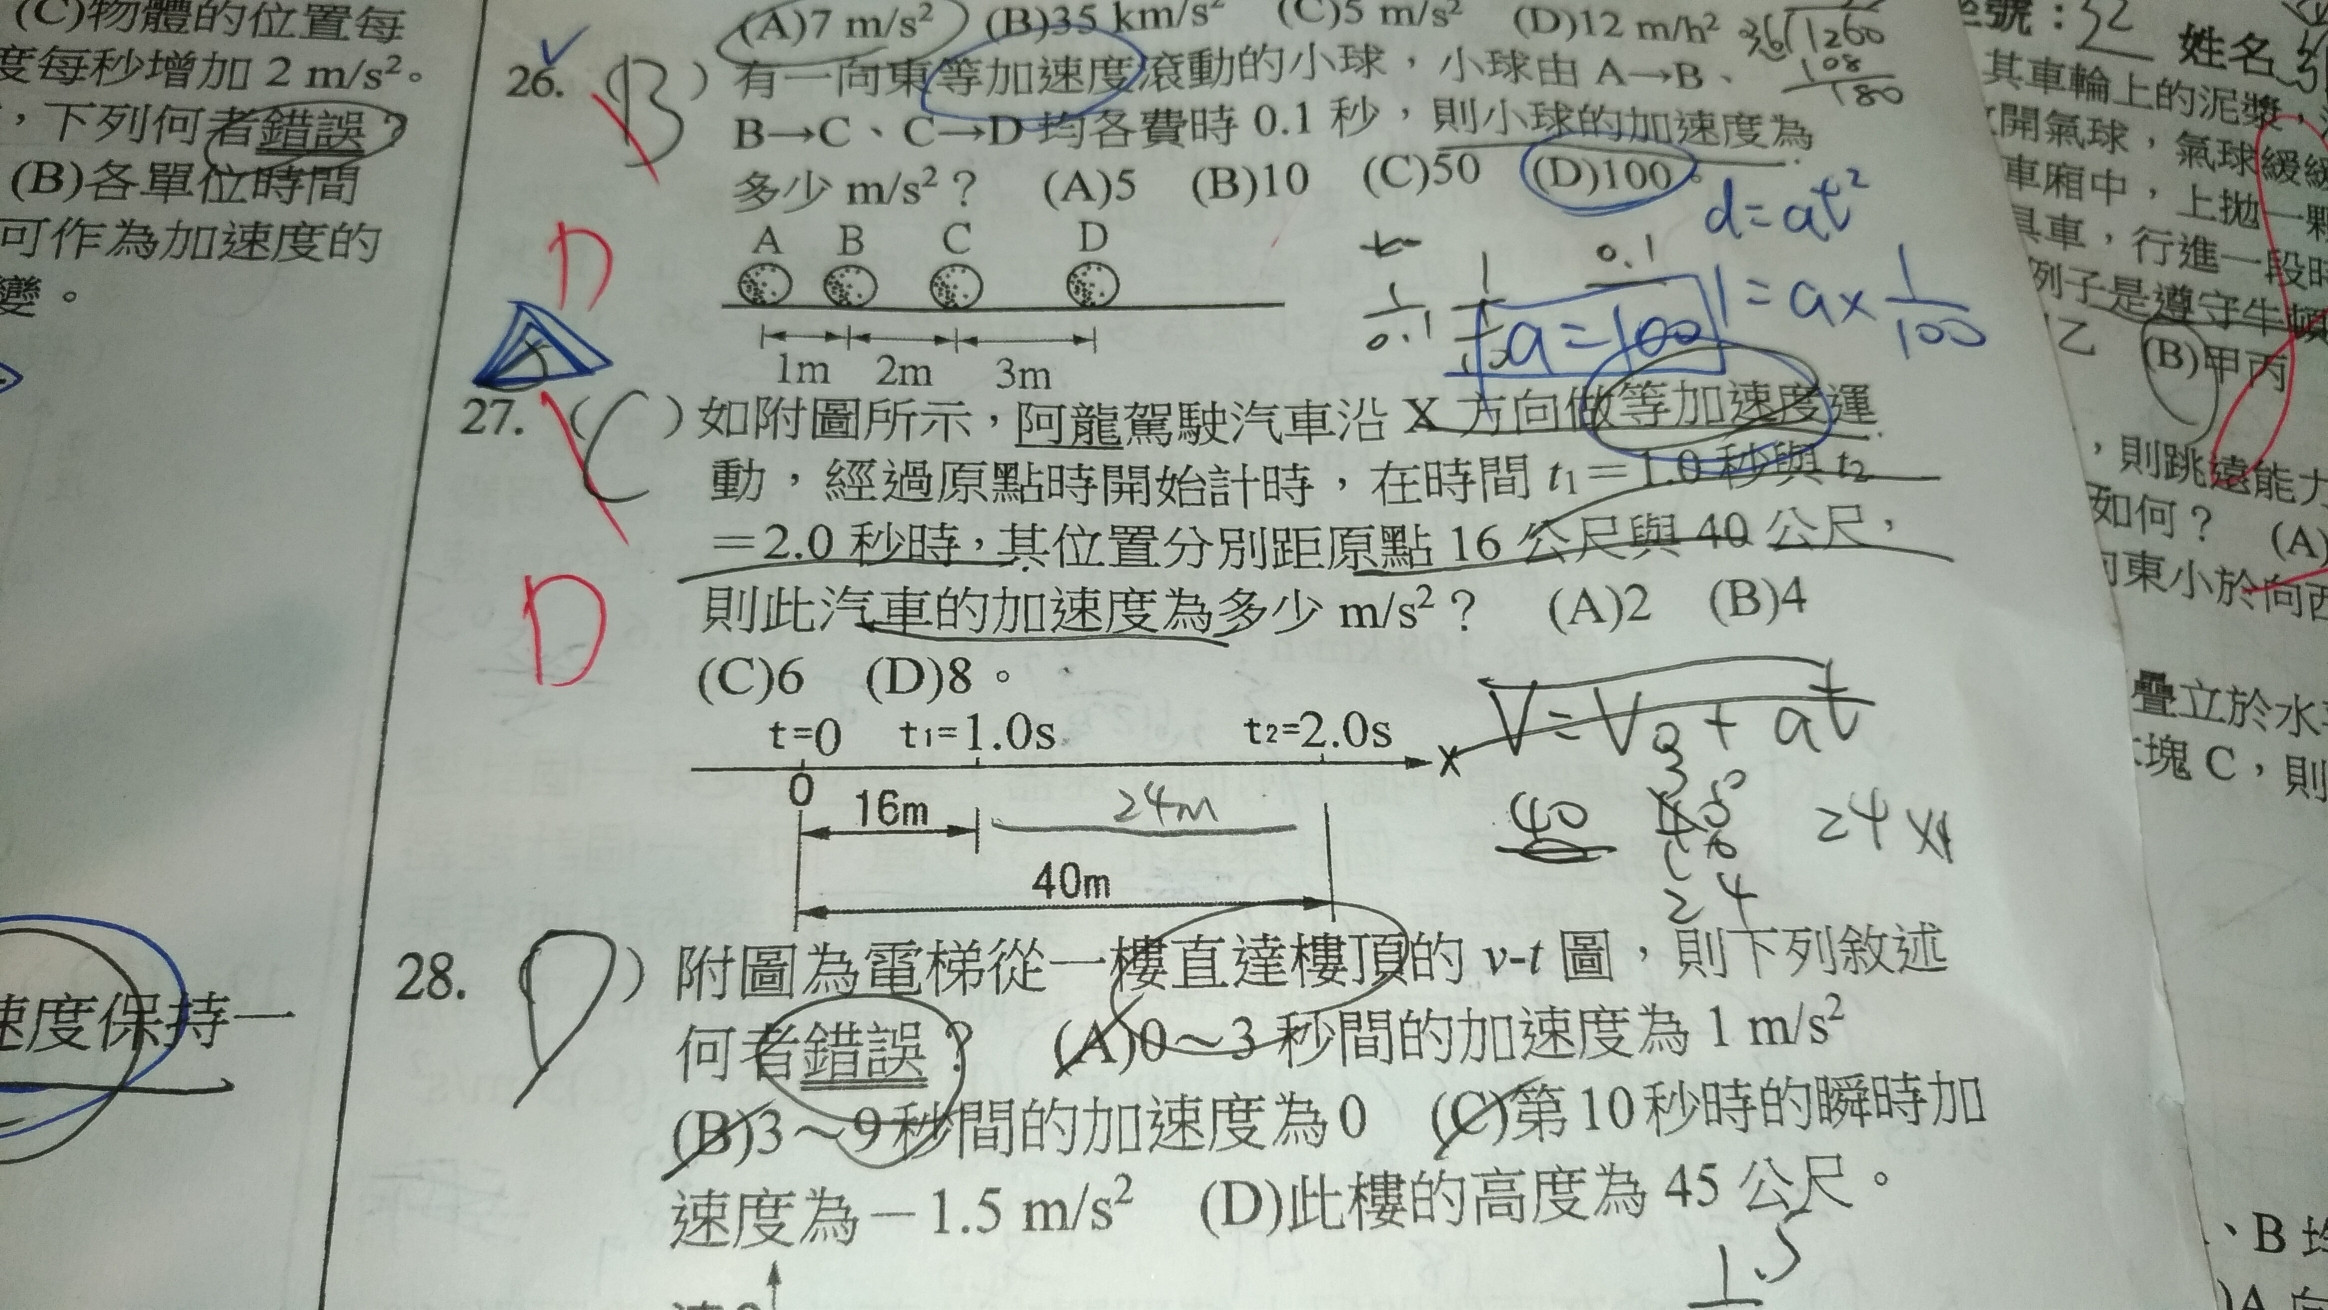 (C)物體的位置每
度每秒增加 2 m/s²。
,下列何者錯誤?
(B)各單位時間
可作為加速度的
變。
速度保持一
(A)7 m/s² (B)35 km/s² (C)5 m/s² (D)12 m/h²
36 1260
108
180
26. ( B ) 有一向東等加速度滾動的小球,小球由 A→B、
B→C、C→D 均各費時 0.1 秒,則小球的加速度為
多少 m/s²? (A)5 (B)10 (C)50 (D)100。
d=at²
D
A B C D
0.1
1=a×1/100
a=100
1m 2m 3m
27. ( C ) 如附圖所示,阿龍駕駛汽車沿 X 方向做等加速度運
動,經過原點時開始計時,在時間 t₁=1.0 秒與 t₂
=2.0 秒時,其位置分別距原點 16 公尺與 40 公尺,
D
則此汽車的加速度為多少 m/s²? (A)2 (B)4
(C)6 (D)8。
t=0 t₁=1.0s t₂=2.0s
X
0
16m 24m
40m
V=V₀+at
40
24
24×1
28. ( D ) 附圖為電梯從一樓直達樓頂的 v-t 圖,則下列敘述
何者錯誤? (A)0~3 秒間的加速度為 1 m/s²
(B)3~9秒間的加速度為0 (C)第10秒時的瞬時加
速度為-1.5 m/s² (D)此樓的高度為 45 公尺。
1.5
號:32 姓名
其車輪上的泥漿,
開氣球,氣球緩緩
車廂中,上拋一顆
具車,行進一段時
例子是遵守牛頓
乙 (B)甲丙
,則跳遠能力
如何? (A)
向東小於向西
疊立於水平
塊 C,則
、B 均